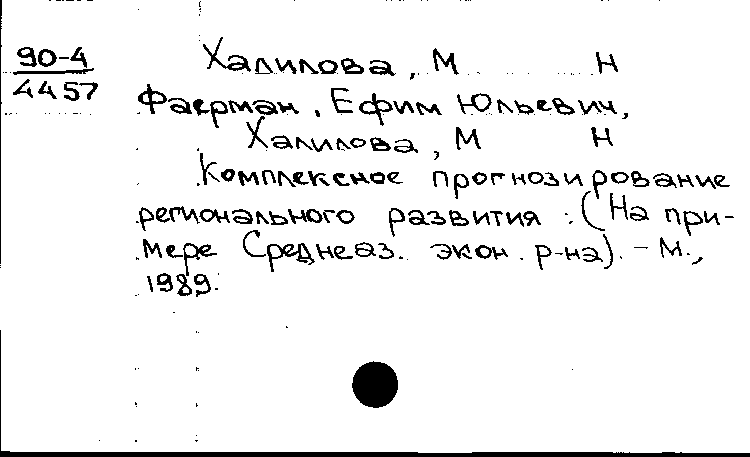 90-4
4457
Халилова, М Н
Фаерман, Ефим Юльевич,
Халилова, М Н
Комплексное прогнозирование
регионального развития : (На при-
мере Среднеаз. экон. р-на). - М.,
1989.